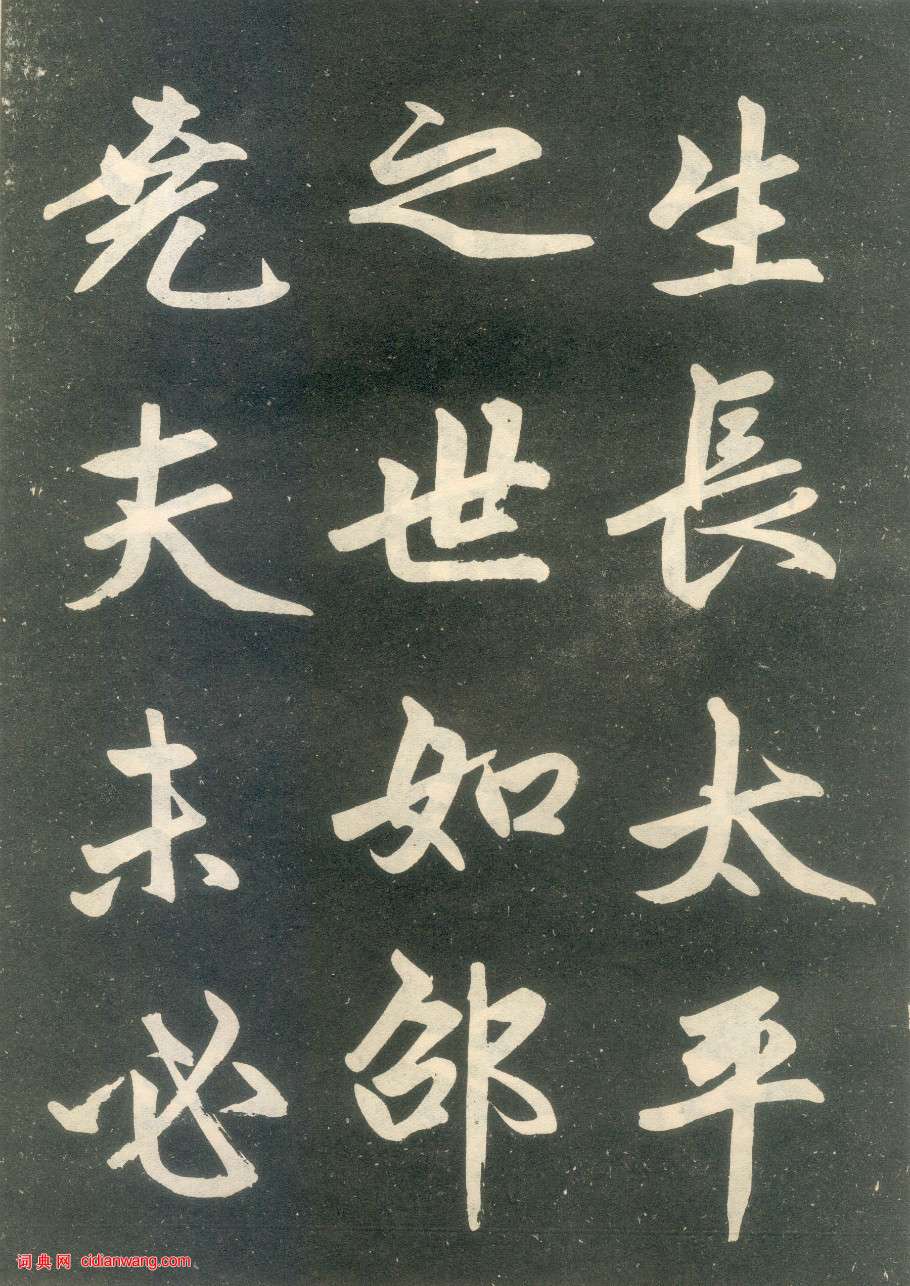 生長太平
之世如邵
堯夫未必
词典网 cidianwang.com